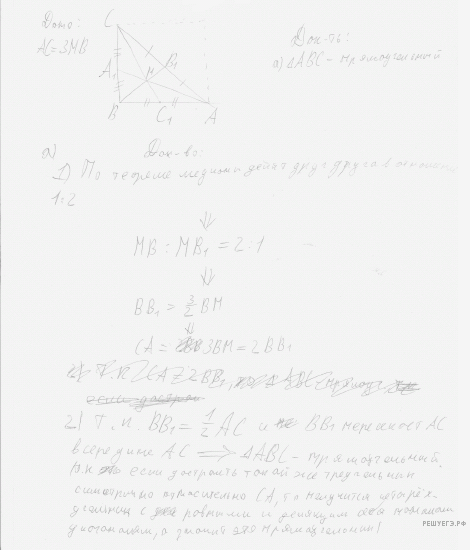 Дано:
AC=3MB
Док-ть:
а) ΔABC - прямоугольный
C
A₁
B₁
M
B
C₁
A
а) Док-во:
1) По теореме медианы делят друг друга в отношении
1:2
⇓
MB : MB₁ = 2:1
⇓
BB₁ = 3/2 BM
⇓
CA = 3BM = 2BB₁
2) Т.к. BB₁ = 1/2 AC и BB₁ пересекает AC
в середине AC ⟹ ΔABC - прямоугольный,
т.к. если достроить такой же треугольник
симметрично относительно CA, то получится четырёх-
угольник с равными и делящимися пополам
диагоналями, а значит это прямоугольник!
РЕШУЕГЭ.РФ